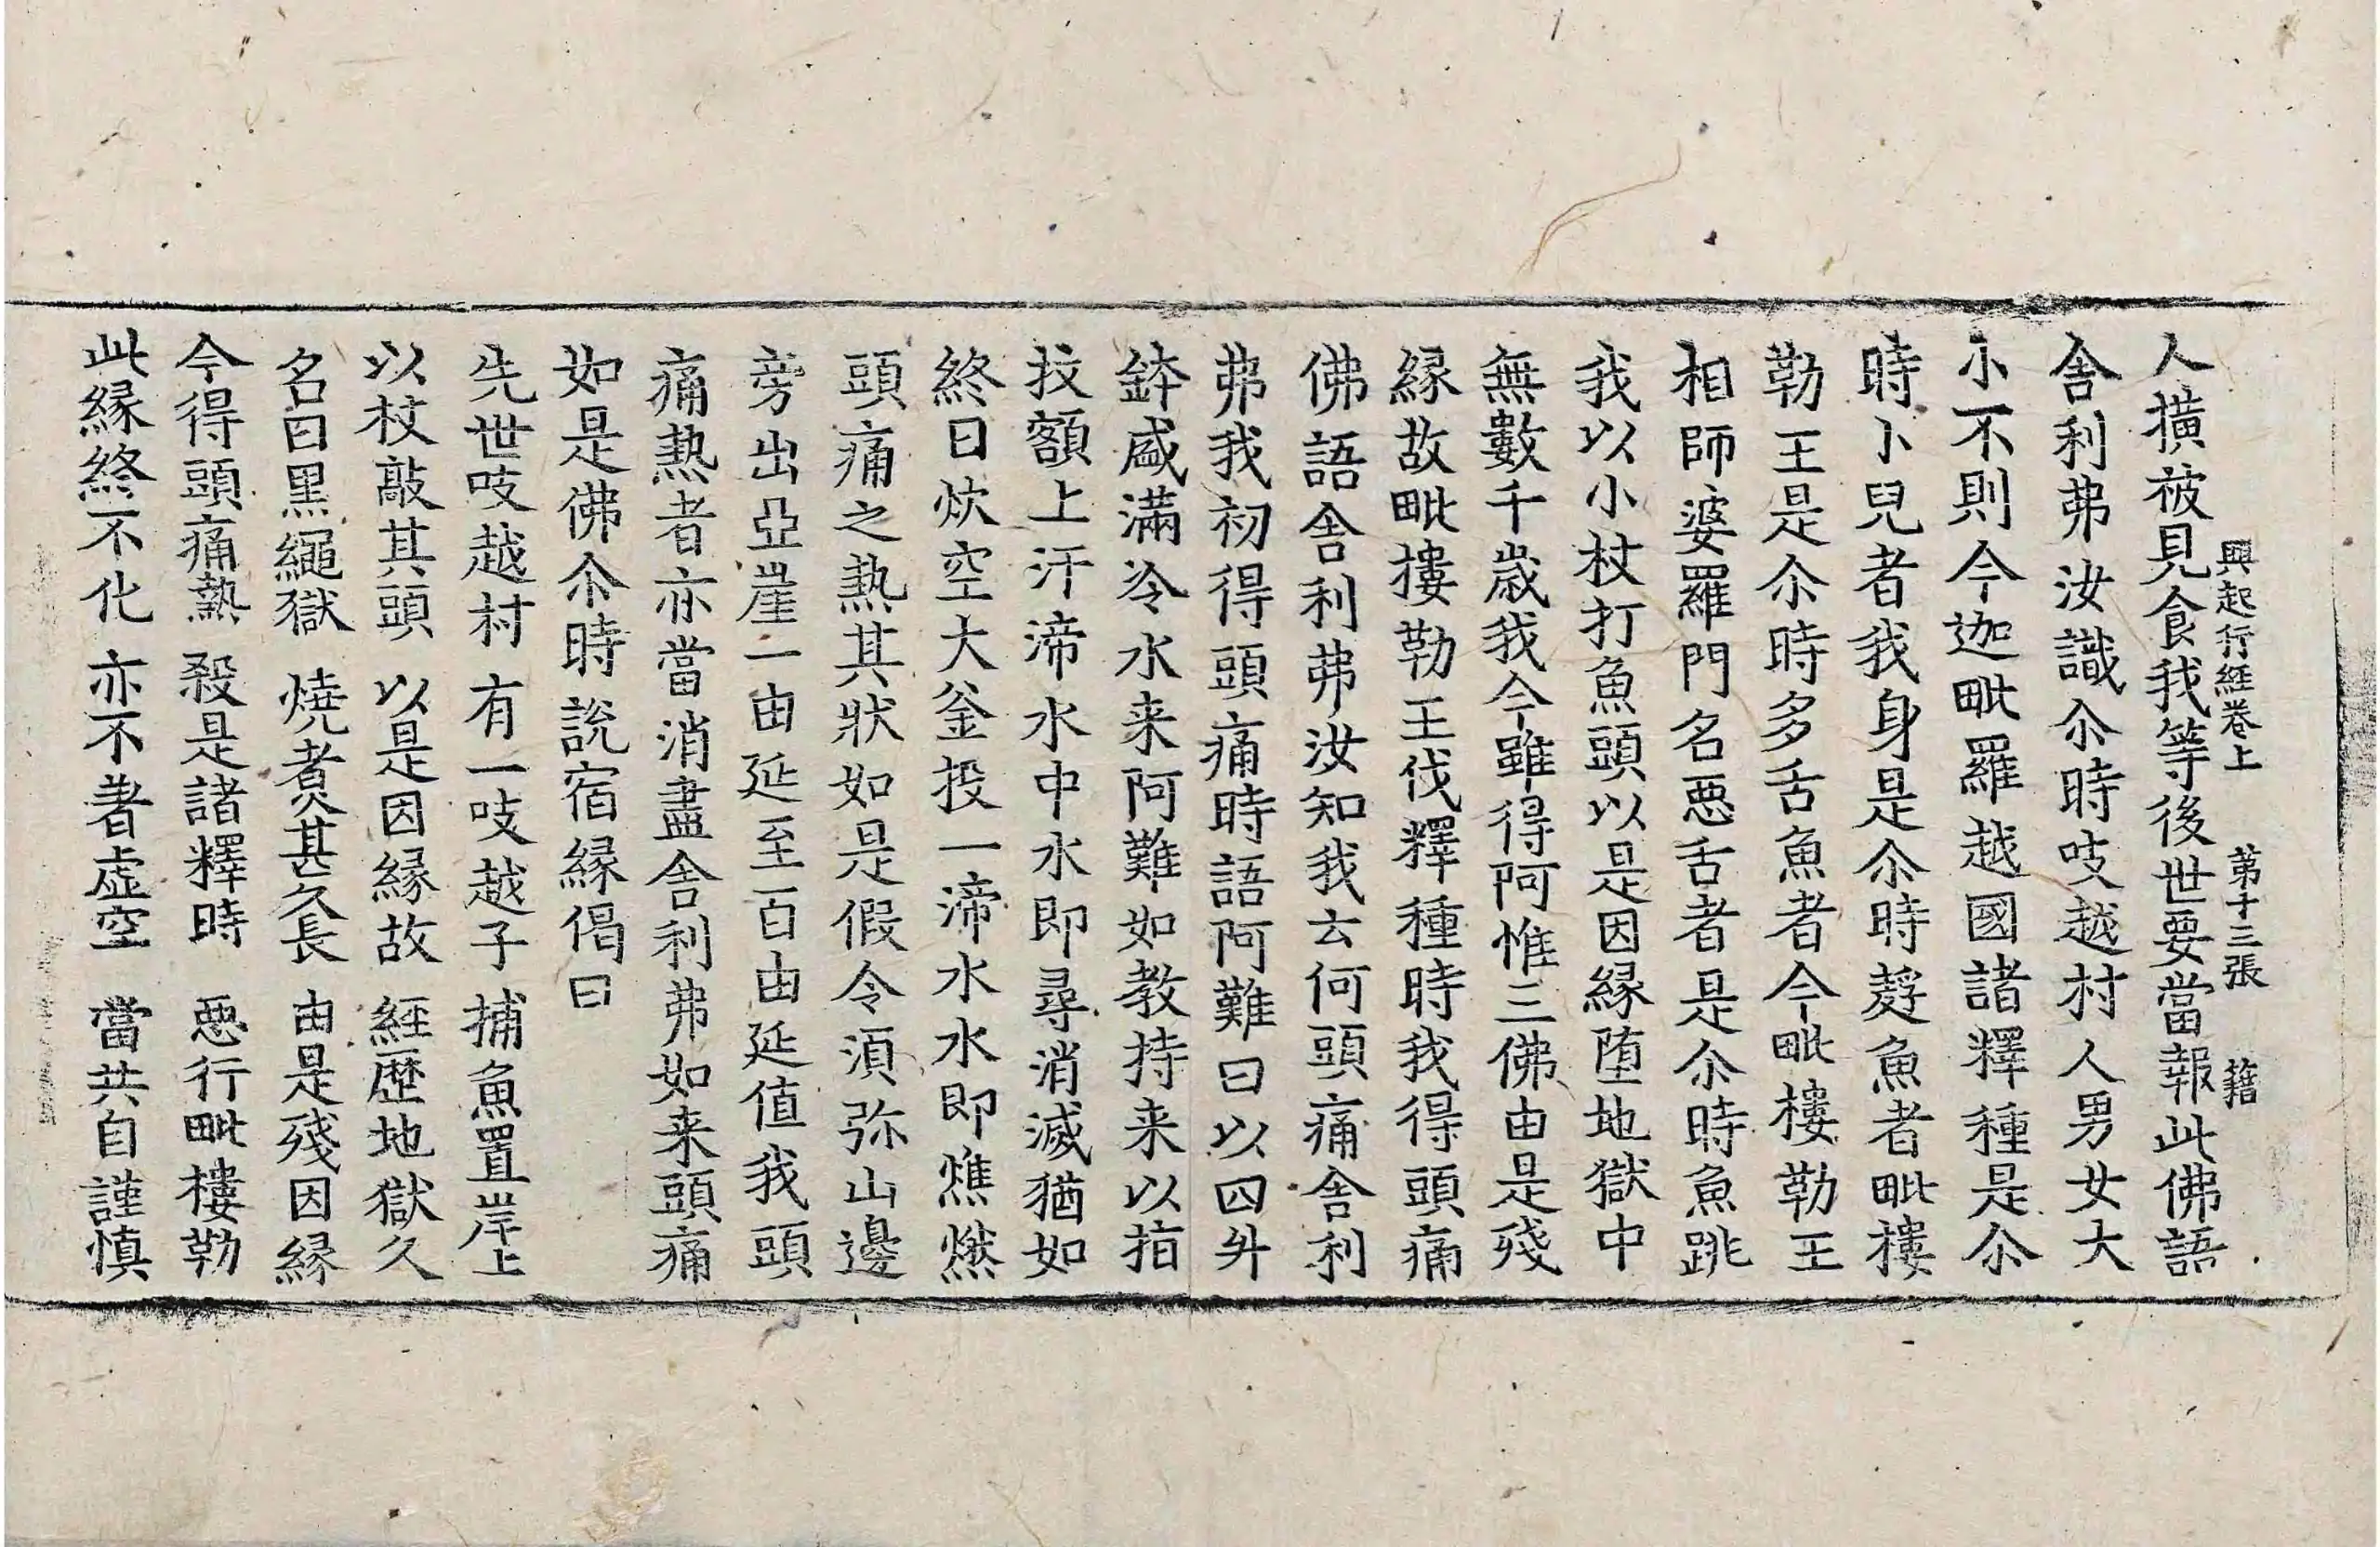 興起行經卷上　第十三張　籍
人撗被見食我等後世要當報此佛語
舍利弗汝識尒時吱越村人男女大
小不則今迦毗羅越國諸釋種是尒
時小兒者我身是尒時麩魚者毗樓
勒王是尒時多舌魚者今毗樓勒王
相師婆羅門名惡舌者是尒時魚跳
我以小杖打魚頭以是因緣堕地獄中
無數千歲我今雖得阿惟三佛由是殘
緣故毗樓勒王伐釋種時我得頭痛
佛語舍利弗汝知我云何頭痛舍利
弗我初得頭痛時語阿難曰以四升
鉢盛滿冷水来阿難如教持来以指
抆額上汗渧水中水即尋消滅猶如
終日炊空大釜投一渧水水即燋燃
頭痛之熱其狀如是假令須弥山邊
旁出亞崖一由延至百由延值我頭
痛熱者亦當消盡舍利弗如来頭痛
如是佛尒時說宿緣偈曰
先世吱越村　有一吱越子　捕魚置岸上
以杖敲其頭　以是因緣故　經歷地獄久
名曰黑繩獄　燒煮甚久長　由是殘因緣
今得頭痛熱　殺是諸釋時　惡行毗樓勒
此緣終不化　亦不著虛空　當共自謹慎